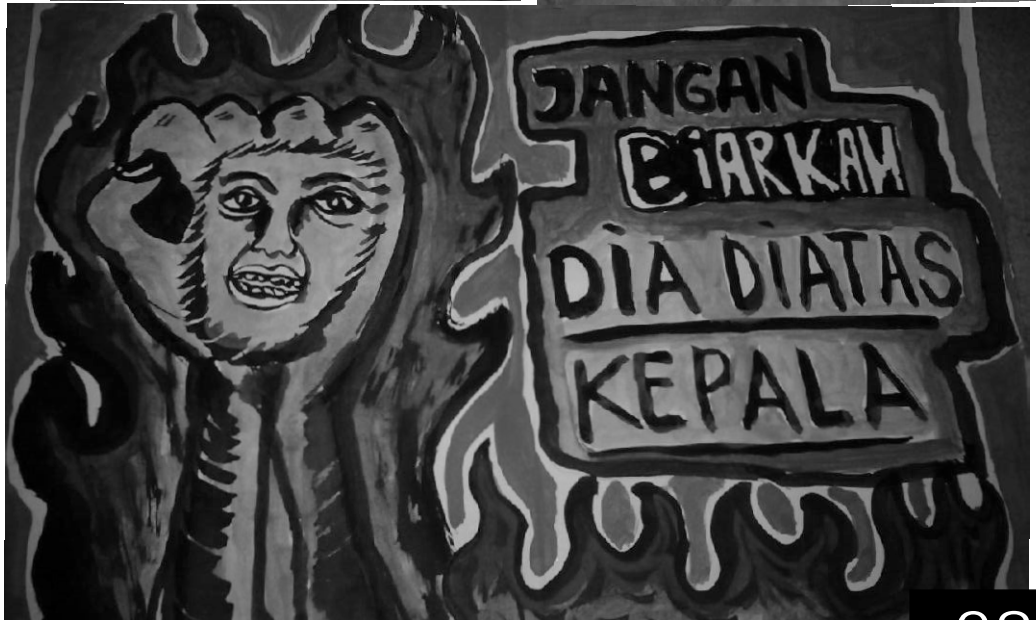 JANGAN
BiARKAN
DiA DIATAS
KEPALA